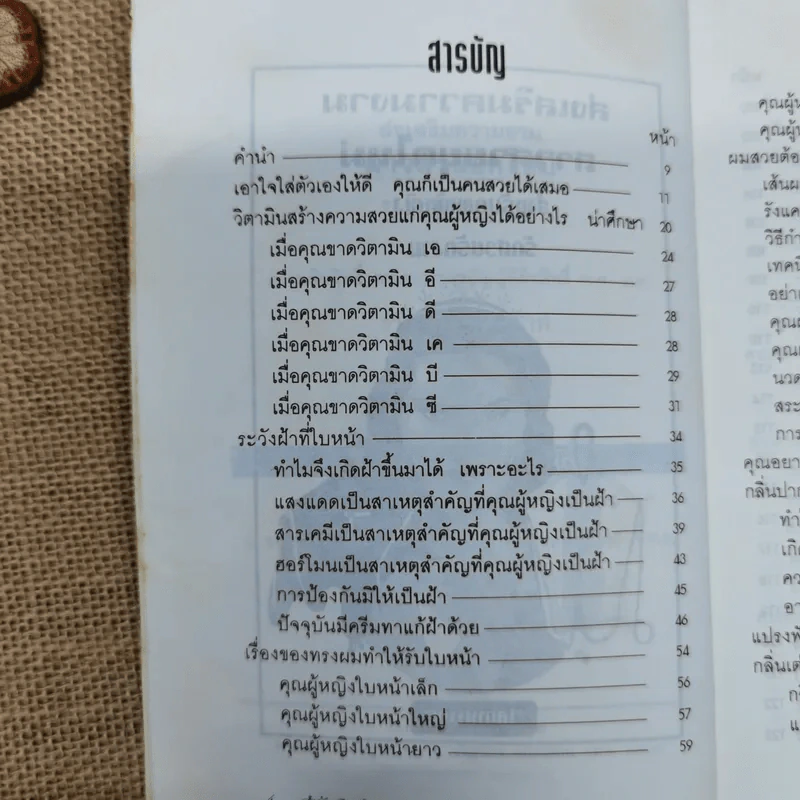 สารบัญ
หน้า
คำนำ 9
เอาใจใส่ตัวเองให้ดี คุณก็เป็นคนสวยได้เสมอ 11
วิตามินสร้างความสวยแก่คุณผู้หญิงได้อย่างไร น่าศึกษา 20
เมื่อคุณขาดวิตามิน เอ 24
เมื่อคุณขาดวิตามิน อี 27
เมื่อคุณขาดวิตามิน ดี 28
เมื่อคุณขาดวิตามิน เค 28
เมื่อคุณขาดวิตามิน บี 29
เมื่อคุณขาดวิตามิน ซี 31
ระวังฝ้าที่ใบหน้า 34
ทำไมจึงเกิดฝ้าขึ้นมาได้ เพราะอะไร 35
แสงแดดเป็นสาเหตุสำคัญที่คุณผู้หญิงเป็นฝ้า 36
สารเคมีเป็นสาเหตุสำคัญที่คุณผู้หญิงเป็นฝ้า 39
ฮอร์โมนเป็นสาเหตุสำคัญที่คุณผู้หญิงเป็นฝ้า 43
การป้องกันมิให้เป็นฝ้า 45
ปัจจุบันมีครีมทาแก้ฝ้าด้วย 46
เรื่องของทรงผมทำให้รับใบหน้า 54
คุณผู้หญิงใบหน้าเล็ก 56
คุณผู้หญิงใบหน้าใหญ่ 57
คุณผู้หญิงใบหน้ายาว 59
คุณผู้
คุณผู้
ผมสวยต้อ
เส้นผ
รังแค
วิธีกำ
เทคนิ
อย่า
คุณ
คุณ
นวด
สระ
การ
คุณอยา
กลิ่นปา
ทำ
เกิด
คว
อา
แปรงฟั
กลิ่นเต่
ก
แ